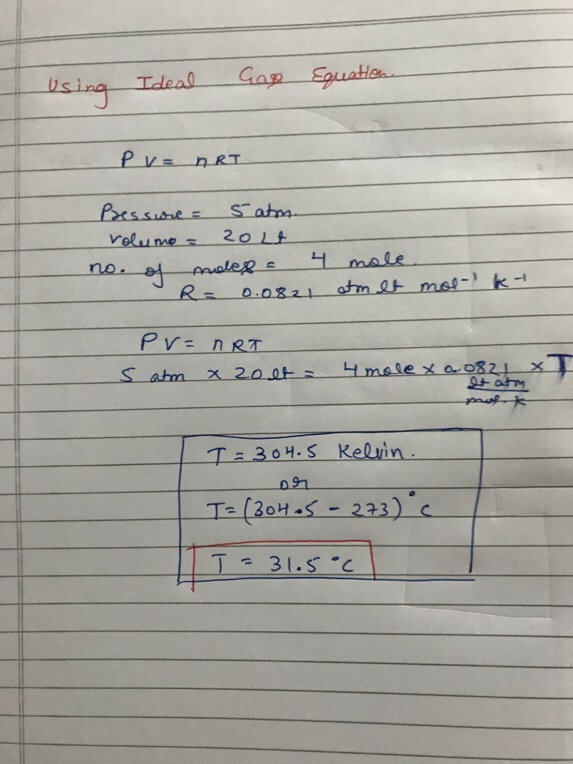 Using Ideal Gas Equation.
PV = nRT
Pressure = 5 atm.
Volume = 20 Lt
no. of moles = 4 mole.
R = 0.0821 atm lt mol⁻¹ k⁻¹
PV = nRT
5 atm x 20 lt = 4 mole x 0.0821 x T
lt atm
mol. k
T = 304.5 Kelvin.
or
T = (304.5 - 273) °C
T = 31.5 °C